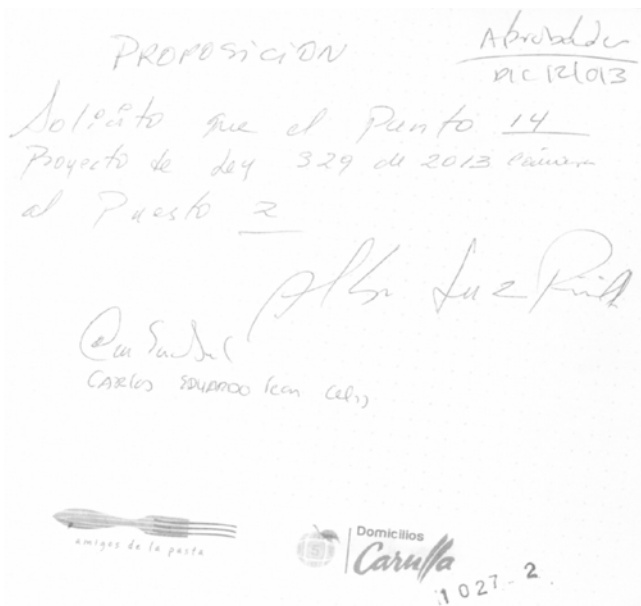 PROPOSICIÓN
Aprobada
DIC 12/013
Solicito que el Punto 14
Proyecto de Ley 329 de 2013 Cámara
al Puesto 2
Alba Luz Pinilla
CARLOS EDUARDO León Celis
amigos de la pasta
Domicilios
Carulla
1027-2